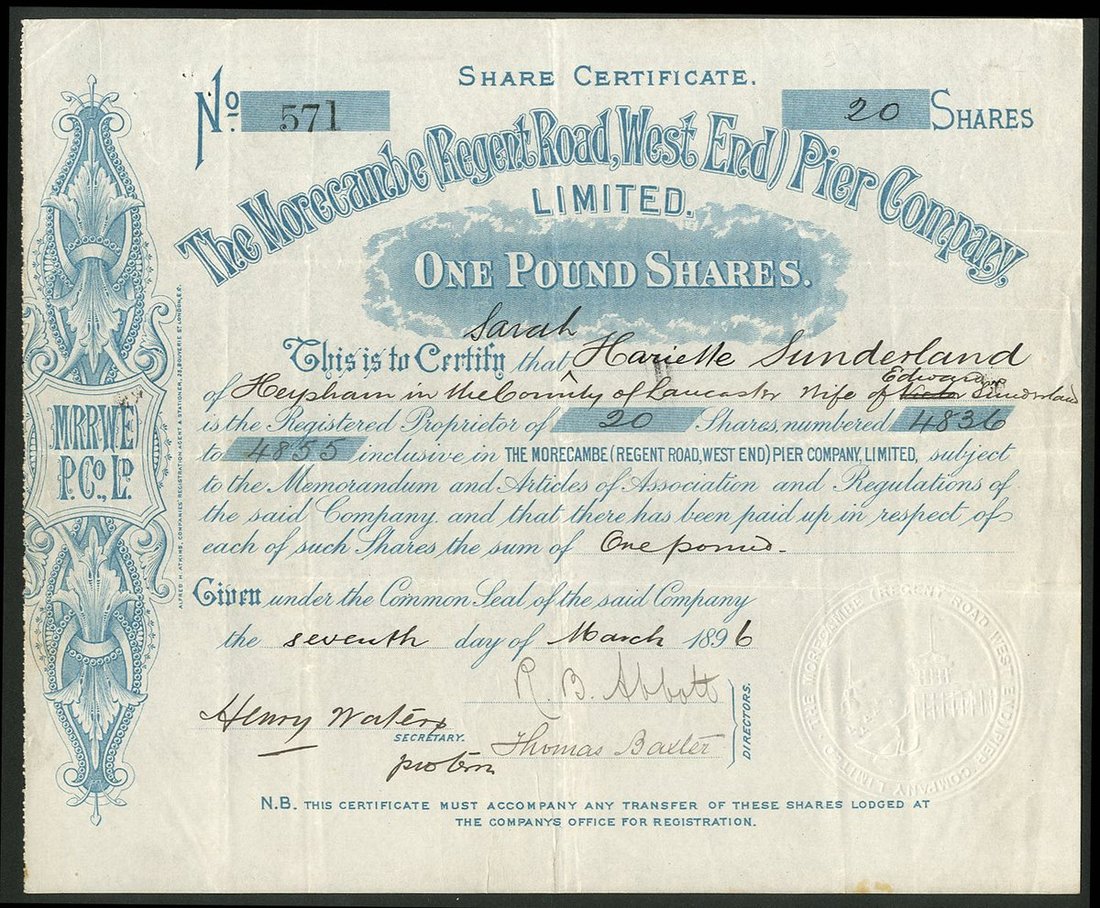 SHARE CERTIFICATE.
No. 571
20 SHARES
The Morecambe (Regent Road, West End) Pier Company,
LIMITED.
ONE POUND SHARES.
Sarah
This is to Certify that ^ Hariette Sunderland
Edward
of Heysham in the County of Lancaster Wife of Sunderland
is the Registered Proprietor of 20 Shares, numbered 4836
to 4855 inclusive, in THE MORECAMBE (REGENT ROAD, WEST END) PIER COMPANY, LIMITED, subject
to the Memorandum and Articles of Association and Regulations of
the said Company, and that there has been paid up in respect of
each of such Shares the sum of One pound.
Given under the Common Seal of the said Company
the seventh day of March 1896
R. B. Abbott
Henry Waters
SECRETARY.
pro tem
Thomas Baxter
DIRECTORS.
N.B. THIS CERTIFICATE MUST ACCOMPANY ANY TRANSFER OF THESE SHARES LODGED AT
THE COMPANYS OFFICE FOR REGISTRATION.
M.R.R.W.E.
P. Co., Ld.
ALFRED H. ATKINS, COMPANIES' REGISTRATION AGENT & STATIONER, BOUVERIE ST. LONDON, E.C.
THE MORECAMBE (REGENT ROAD WEST END) PIER COMPANY LIMITED